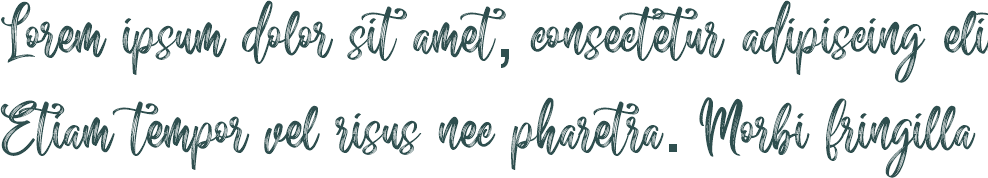 Lorem ipsum dolor sit amet, consectetur adipiscing eli
Etiam tempor vel risus nec pharetra. Morbi fringilla